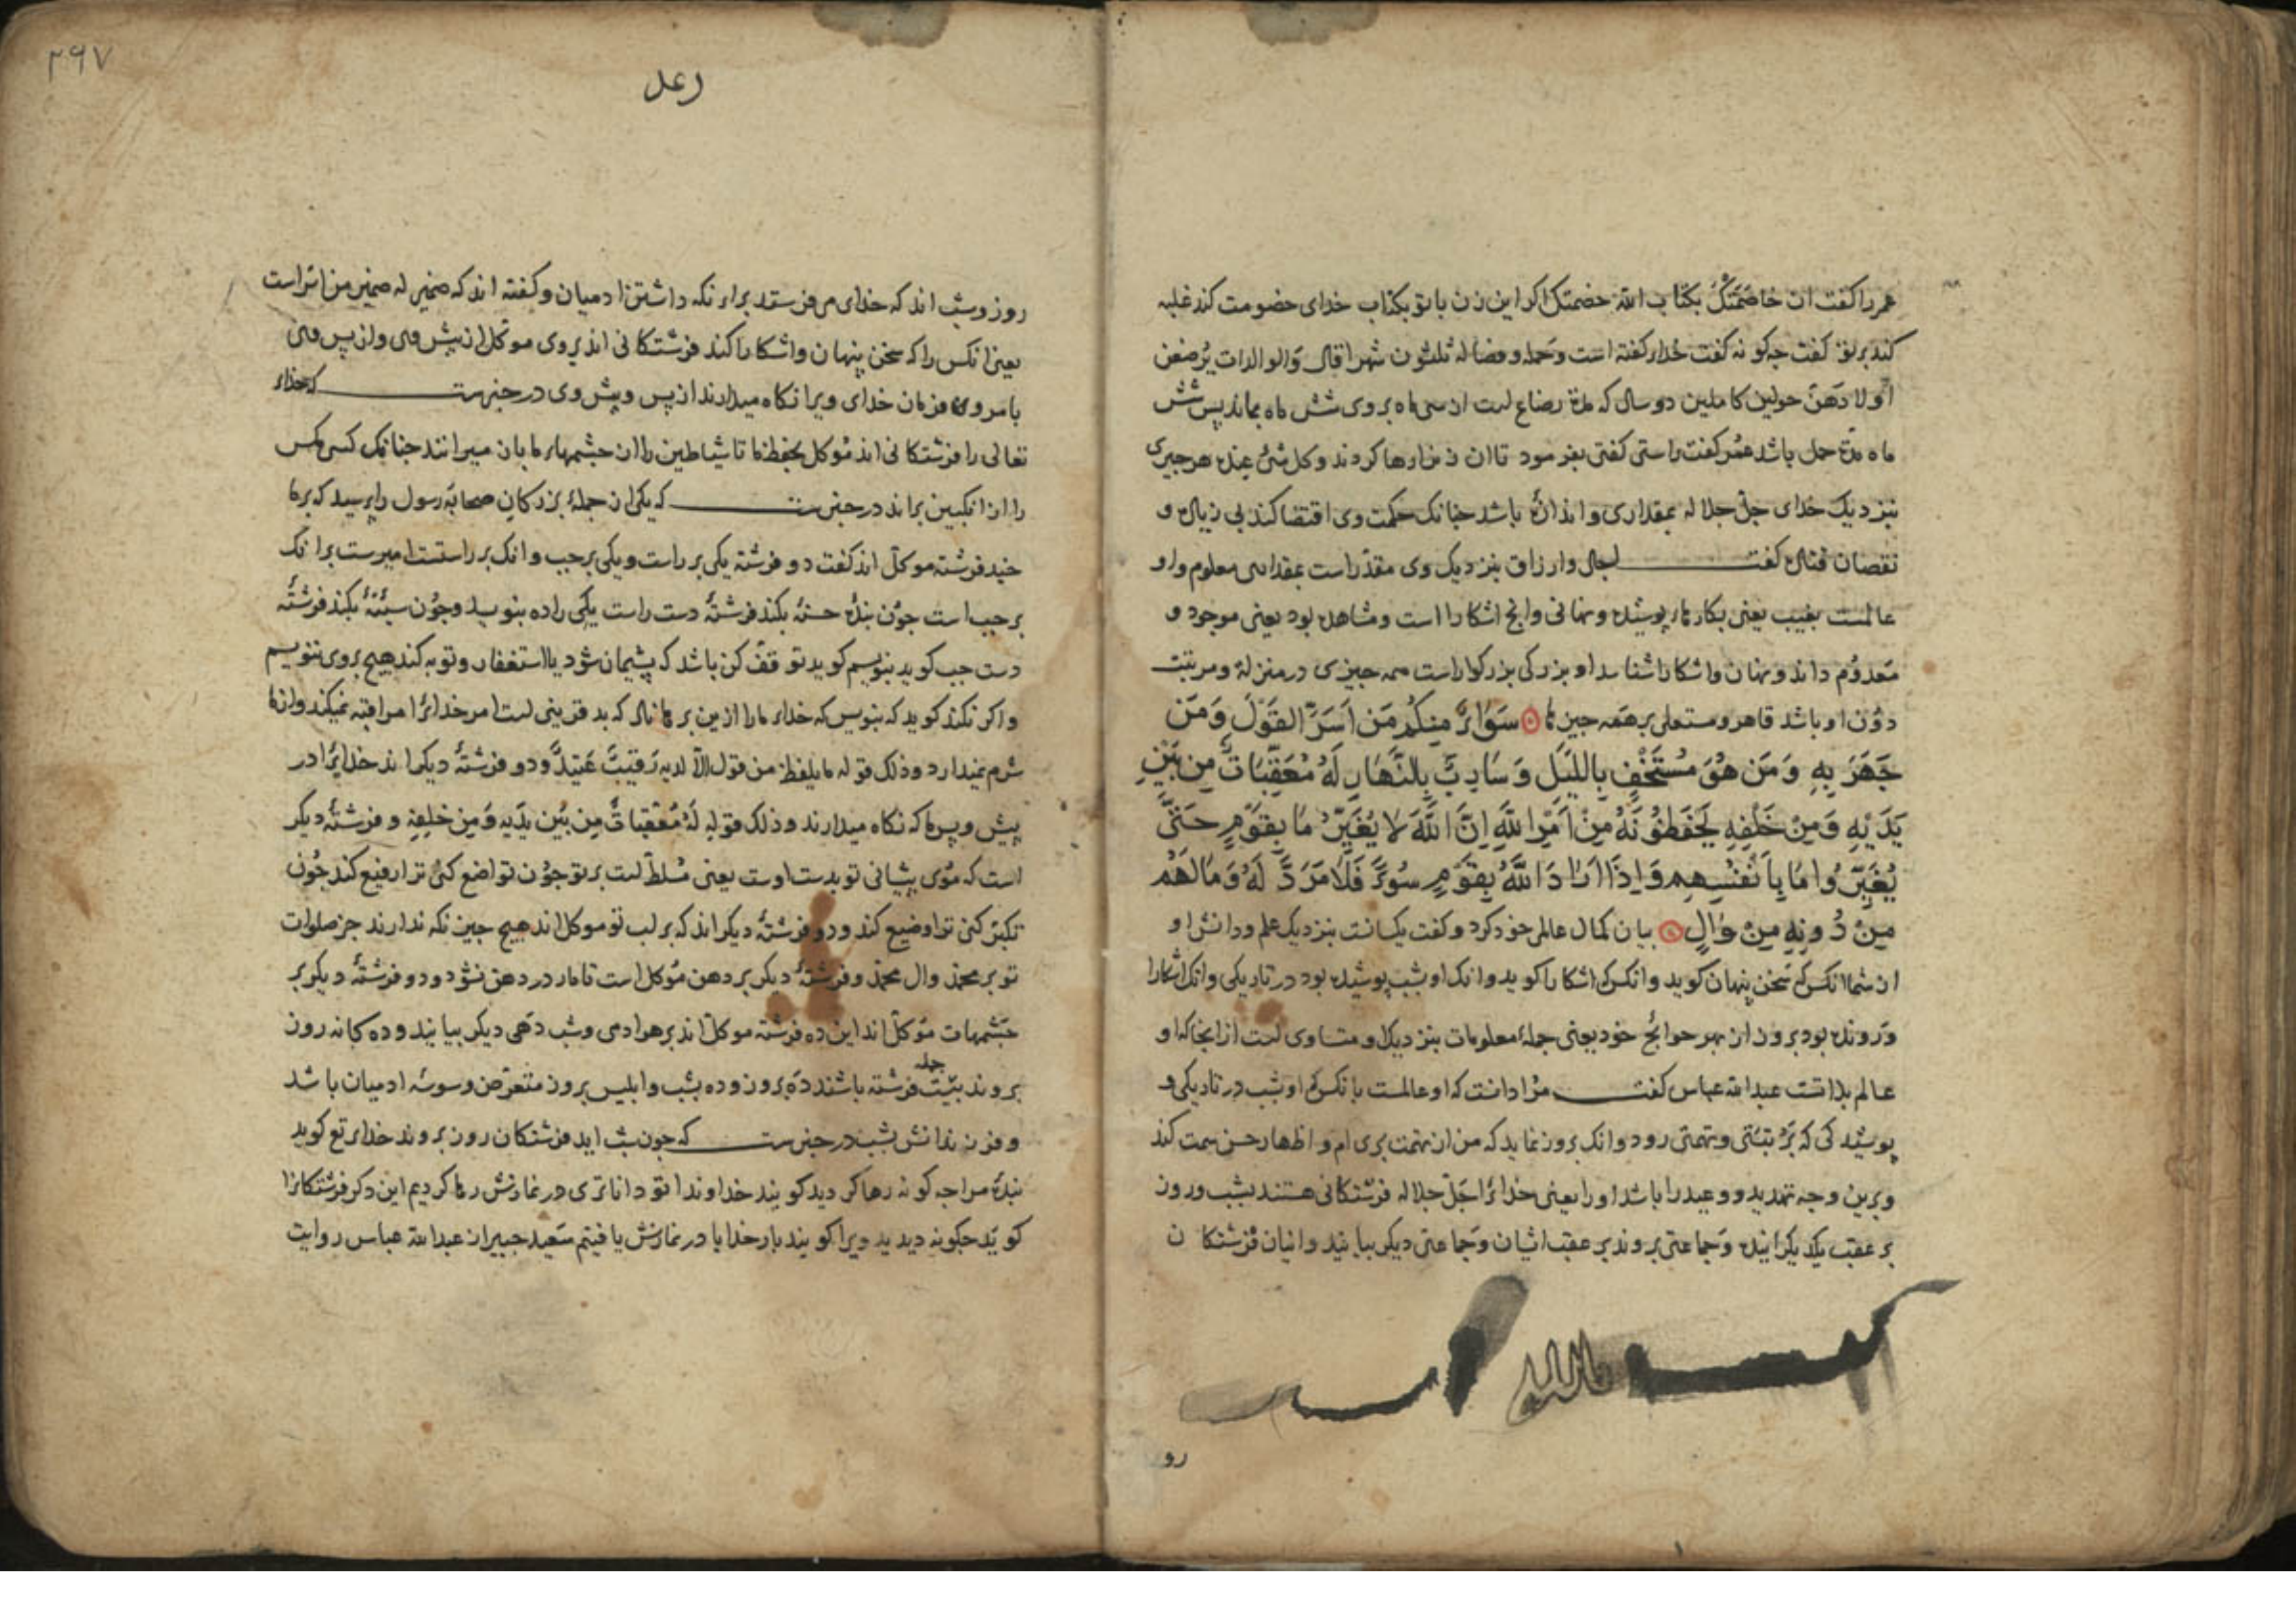 عمر را کفت ان خاصَمَتکَ بکتاب اللّه خصمتک اکر این زن با تو بکتاب خدای خصومت کند غلبه
کند بر تو کفت جه کونه کفت خدای کفته است وحمله وفصاله ثلثون شهرا قال وَالوالدات یُرضعن
اَولادَهُنّ حولین کاملین دو سال که مدّة رضاع است از سی ماه بروی شش ماه بماند پس شش
ماه مدّة حمل باشد عُمر کفت راستی کفتی بفرمود تا ان زن را رها کردند وکل شیءٍ عنده هر جیزی
بنزدیک خدای جلّ جلاله بمقداری و اندازهٔ باشد جنانک حکمت وی اقتضا کند بی زیادت و
نقصان قتاده کفت اجال وارزاق بنزدیک وی مقدّر است بمقداری معلوم واو
عالمست بغیب یعنی بکارهاء پوشیده ونهانی وانچ اشکارا است ومشاهد بود یعنی موجود و
مَعدوُم داند ونهان واشکارا شناسد او بزرکی بزرکوار است همه جیزی در منزلة ومرتبت
دوُن او باشد قاهر ومستعلی بر همَه جیزها سَوَاءٌ مِنکُم مَن اَسَرَّ القَوَلَ وَمَن
جَهَرَ بِهِ وَمَن هُوَ مُسْتَخْفٍ بِاللَّیلِ وَسَارِبٌ بِالنَّهَارِ لَهُ مُعَقِّبَاتٌ مِن بَیْنِ
یَدَیْهِ وَمِنْ خَلْفِهِ یَحْفَظُوْنَهُ مِنْ اَمْرِ اللَّهِ اِنَّ اللَّهَ لا یُغَیِّرُ مَا بِقَوْمٍ حَتَّی
یُغَیِّرُوا مَا بِاَنْفُسِهِم وَاِذَا اَرَادَ اللَّهُ بِقَوْمٍ سُوءً فَلَا مَرَدَّ لَهُ وَمَا لَهُم
مِنْ دُونِهِ مِنْ وَالٍ بیان کمال عالمی خود کرد وکفت یکسانست بنزدیک علم ودانش او
از شما انکس که سَخن پنهان کوید وانکس که اشکارا کوید وانک او بشب پوشیده بود در تاریکی وانک اشکارا
ورَونده بود بروز از بهر حوائج خود یعنی جملهٔ معلومات بنزدیک او متساوی است از انجا که او
عالم بذاتست عبد اللّه عباس کفت مراد انست که او عالمست بانکس که او شب در تاریکی
پوشیده کی که بَر تهمتی رود وانک بروز نماید که من از تهمت بری ام و اظهار حسن سمت کند
وبرین وجه تهدید ووعید را باشد او را یعنی خدائرا جَلّ جلاله فرشتکانی هستند بشب وروز
بر عقب یکدیکر ایند وجَماعتی بروند بر عقب ایشان وجَماعتی دیکر بیایند وایشان فرشتکان
بسم الله
رو
۳۹۷
رعد
روز وشب اند که خدای می فرستد برای نکه داشتن ادمیان وکفته اند که ضمیر له ضمیر من اسَرّ است
یعنی انکس را که سخن پنهان واشکارا کند فرشتکانی اند بروی موکّل از پیش وی واز پس وی
بامر وی وفرمان خدای ویرا نکاه میدارند از پس وپیش وی در خبرست که خدای
تعالی را فرشتکانی اند مُوکل بحفظ ما تا شیاطین را از جشمهاء ما باز میرانند جنانک کسی مکس
را از انکبین براند در خبرست که یکی از جملهٔ بزرکان صحابه رسول را پرسید که بر ما
جند فرشته موکّل اند کفت دو فرشته یکی بر راست ویکی بر جب وانک بر راستست امیرست بر انک
بر جب است جوُن بندهٔ حسنهٔ بکند فرشتهٔ دست راست یکی را ده بنویسد وجوُن سیّئهٔ بکند فرشتهٔ
دست جب کوید بنویسم کوید توقفّ کن باشد که پشیمان شود یا استغفار وتوبه کند هیچ بروی ننویسم
واکر نکند کوید که بنویس که خدای ما را ازین برهاناد که بد قرینی است امر خدائرا مراقبه نمیکند وازما
شرم نمیدارد وذلک قوله ما یلفظ من قول الّا لدیه رَقیبٌ عَتیدٌ ودو فرشتهٔ دیکر اند خدایرا در
پیش وپس ما که نکاه میدارند وذلک قوله لَهُ مُعَقّباتٌ مِن بَیْن یدَیه وَمِن خلفِهِ وفرشتهٔ دیکر
است که مُوی پیشانی تو بدست اوست یعنی مُسلّط است بر تو جوُن تواضع کنی ترا رفیع کند جُون
تکبّر کنی ترا وضیع کند ودو فرشتهٔ دیکر اند که بر لب تو موکل اند هیچ جیز نکه ندارند جز صلوات
تو بر محمّد وال محمّد وفرشتهٔ دیکر بر دهن مُوکّل است تا مار در دهن نشود ودو فرشتهٔ دیکر بر
جَشمهات مُوکّل اند این ده فرشته موکّل اند بر هر ادمی وشب دَهی دیکر بیایند وده کانه روز
بروند بیست فرشته باشند دَه بروز وده بشب وابلیس بروز متعرّض وسوسهٔ ادمیان باشد
جمله
وفرزندانش بشب در خبرست که جون شب اید فرشتکان روز بروند خدای تع کوید
بندهٔ مرا جه کونه رها کردید کویند خداوندا تو داناتری در نمازش رها کردیم این دکر فرشتکانرا
کویَد جکونه دیدید ویرا کویند بار خدایا در نمازش یافتیم سَعید جبیر از عبد اللّه عباس روایت